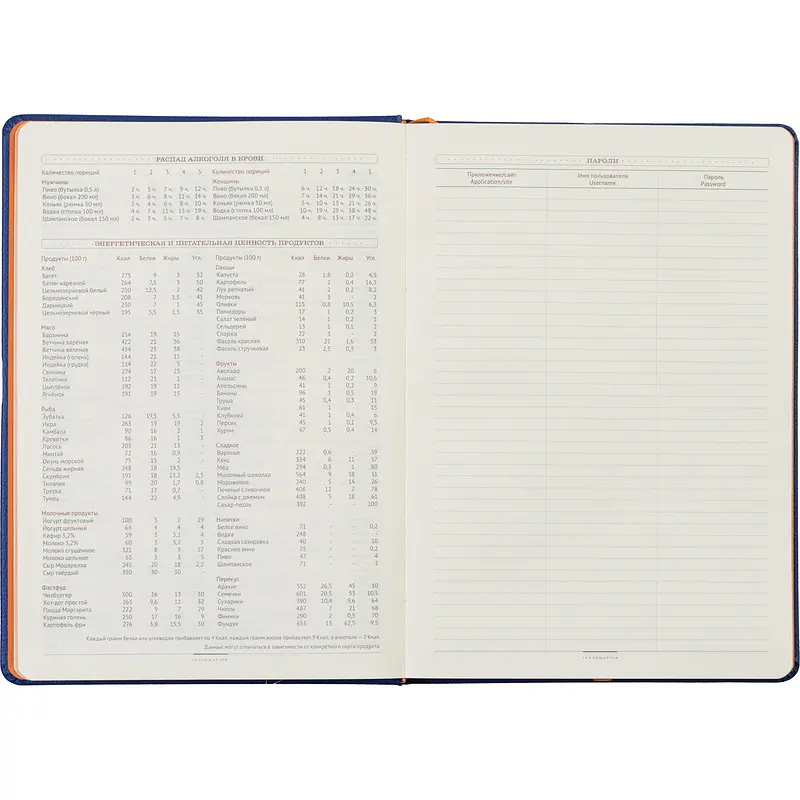 РАСПАД АЛКОГОЛЯ В КРОВИ
Количество порций 1 2 3 4 5 Количество порций 1 2 3 4 5
Мужчины Женщины
Пиво (бутылка 0,5 л) 2 ч. 5 ч. 7 ч. 9 ч. 12 ч. Пиво (бутылка 0,5 л) 6 ч. 12 ч. 18 ч. 24 ч. 30 ч.
Вино (бокал 200 мл) 3 ч. 6 ч. 8 ч. 11 ч. 14 ч. Вино (бокал 200 мл) 7 ч. 14 ч. 21 ч. 29 ч. 36 ч.
Коньяк (рюмка 50 мл) 2 ч. 4 ч. 6 ч. 8 ч. 10 ч. Коньяк (рюмка 50 мл) 5 ч. 10 ч. 13 ч. 21 ч. 26 ч.
Водка (стопка 100 мл) 4 ч. 7 ч. 11 ч. 15 ч. 19 ч. Водка (стопка 100 мл) 10 ч. 19 ч. 29 ч. 38 ч. 48 ч.
Шампанское (бокал 150 мл) 2 ч. 3 ч. 5 ч. 7 ч. 8 ч. Шампанское (бокал 150 мл) 4 ч. 8 ч. 13 ч. 17 ч. 22 ч.
ЭНЕРГЕТИЧЕСКАЯ И ПИТАТЕЛЬНАЯ ЦЕННОСТЬ ПРОДУКТОВ
Продукты (100 г) Ккал Белки Жиры Угл. Продукты (100 г) Ккал Белки Жиры Угл.
Хлеб
Багет 275 9 3 52
Батон нарезной 264 7,5 3 50
Цельнозерновой белый 250 12,5 2 42
Бородинский 208 7 1,5 41
Дарницкий 230 7 1 45
Цельнозерновой чёрный 195 5,5 1,5 35
Мясо
Баранина 214 19 15 -
Ветчина варёная 422 21 36 -
Ветчина вяленая 434 23 38 -
Индейка (голень) 144 21 11 -
Индейка (грудка) 114 22 5 -
Свинина 274 17 23 -
Телятина 112 23 1 -
Цыплёнок 192 19 11 -
Ягнёнок 191 19 15 -
Рыба
Зубатка 126 19,5 5,5 -
Икра 263 19 19 2
Камбала 90 16 2 1
Креветки 86 16 1 3
Лосось 203 21 13 -
Минтай 72 16 0,9 -
Окунь морской 75 15 2 -
Сельдь жирная 248 18 19,5 -
Скумбрия 191 18 13,2 2,5
Тилапия 99 20 1,7 0,8
Треска 71 17 0,7 -
Тунец 144 22 4,9 -
Молочные продукты
Йогурт фруктовый 100 3 2 19
Йогурт цельный 64 4 4 4
Кефир 3,2% 59 3 3,2 4
Молоко 3,2% 60 3 3,2 5
Молоко сгущённое 321 8 9 57
Молоко цельное 63 3 3 5
Сыр Моцарелла 245 20 18 2,2
Сыр твёрдый 350 30 30 -
Фастфуд
Чизбургер 300 16 13 30
Хот-дог простой 263 9,6 11 32
Пицца Маргарита 222 9 7 29
Куриная голень 250 17 16 9
Картофель фри 276 3,8 15,5 30
Овощи
Капуста 28 1,8 0,2 4,5
Картофель 77 2 0,4 16,3
Лук репчатый 41 2 0,2 8,2
Морковь 41 3 - 2
Оливки 115 0,8 10,5 6,3
Помидоры 17 1 0,2 3
Салат зелёный 14 1 0,2 3
Сельдерей 13 1 0,1 2
Спаржа 22 3 - 2
Фасоль красная 310 21 1,6 53
Фасоль стручковая 23 2,5 0,3 3
Фрукты
Авокадо 200 2 20 6
Ананас 46 0,4 0,2 10,6
Апельсины 41 1 0,2 9
Бананы 96 1 0,5 19
Груша 45 0,4 0,3 11
Киви 61 1 - 15
Клубника 41 1 0,4 6
Персик 45 1 0,1 9,5
Хурма 67 0,5 0,4 14
Сладкое
Варенье 222 0,6 - 59
Кекс 334 6 11 57
Мёд 294 0,3 1 80
Молочный шоколад 564 9 38 51
Мороженое 240 5 14 26
Печенье сливочное 406 12 7 78
Слойка с джемом 408 5 18 61
Сахар-песок 392 - - 100
Напитки
Белое вино 71 - - 0,2
Водка 248 - - -
Сладкая газировка 40 - - 10
Красное вино 75 - - 0,2
Пиво 47 - - 4
Шампанское 71 - - 3
Перекус
Арахис 552 26,5 45 10
Семечки 601 20,5 53 10,5
Сухарики 390 10,4 9,6 64
Чипсы 487 7 21 68
Финики 290 2 0,5 70
Фундук 653 13 62,5 9,5
Каждый грамм белка или углеводов прибавляет по 4 Ккал, каждый грамм жиров прибавляет 9 Ккал, а алкоголя — 7 Ккал
Данные могут отличаться в зависимости от конкретного сорта продукта
INFORMATION
ПАРОЛИ
Приложение/сайт Имя пользователя Пароль
Application/site Username Password
INFORMATION